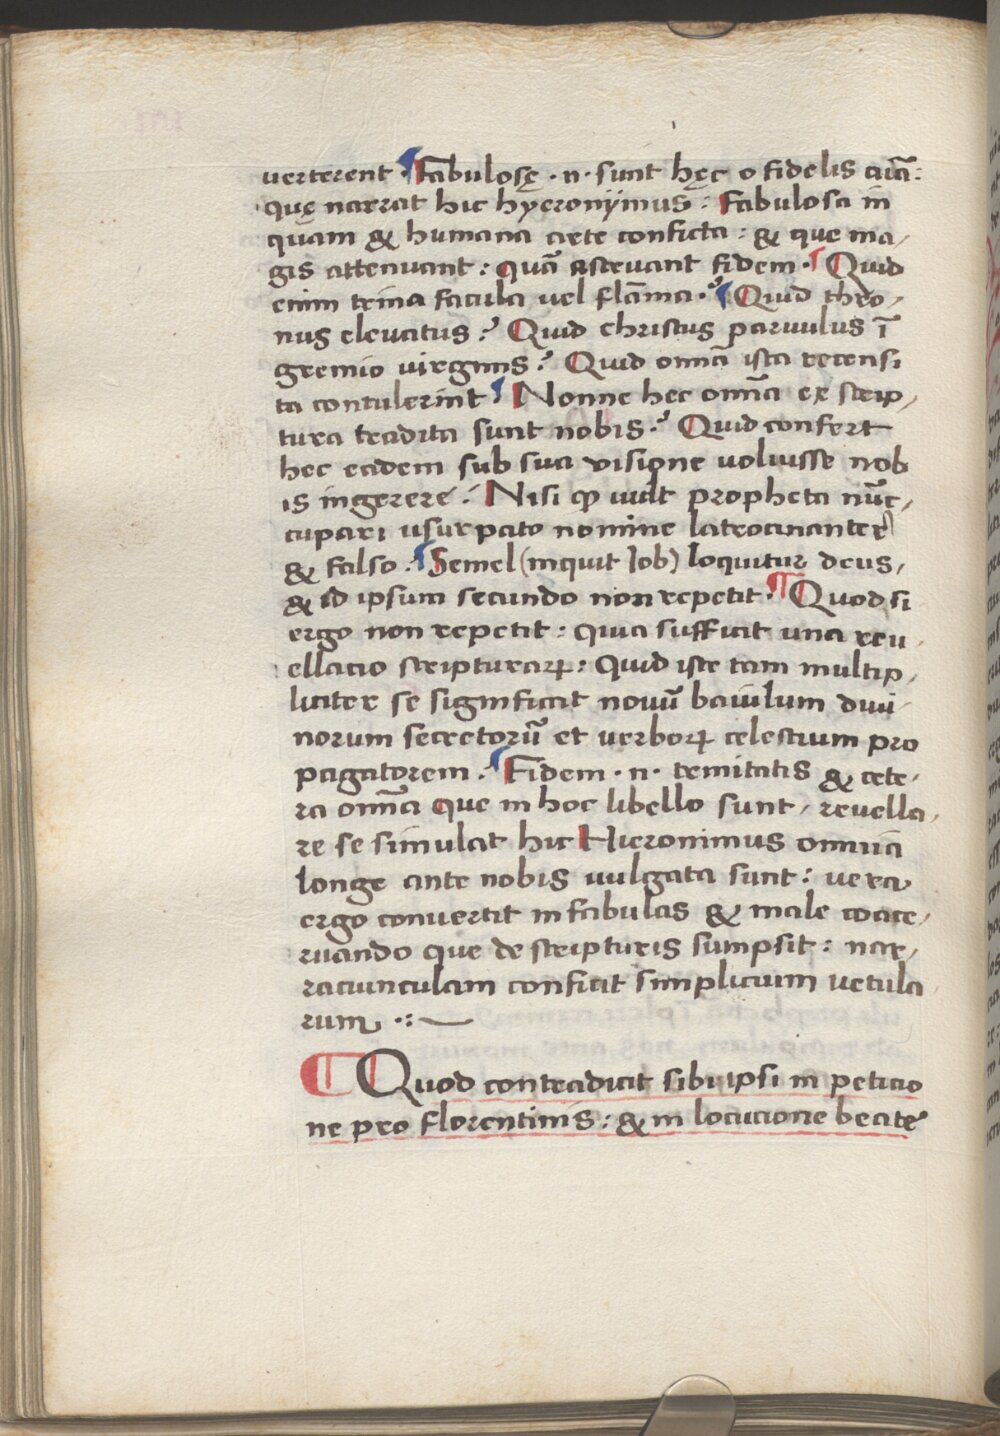 verterent ¶ Fabulosę .n. sunt hęc o fidelis aīa:
quę narrat hic hyeronijmus: Fabulosa in
quam & humana arte conficta: & que ma,
gis attenuant: quā astruant fidem. ¶ Quid
enim trina facula uel flāma.? ¶ Quid thro,
nus eleuatus? Quid christus paruulus ī
gremio uirginis? Quid omīa ista recensi
ta contulerint ¶ Nonne hec omīa ex scrip,
tura tradita sunt nobis.? Quid confert
hec eadem sub sua visione uoluisse nob
is ingerere? Nisi ꝙ uult propheta nūc,
cupari usurpato nomine latrocinanter
& falso: ¶ Semel (inquit Iob) loquitur deus,
& id ipsum secundo non repetit. ¶ Quod si
ergo non repetit: quia sufficit una reu,
ellatio scripturaꝝ: Quid iste tam multip,
liciter se significat nouū baiulum diui,
norum secretorū et uerboꝝ celestium pro
pagatorem? ¶ Fidem .n. trnitatis & cete,
ra omīa que in hoc libello sunt, reuella,
re se simulat hic Hieronimus omnia
longe ante nobis uulgata sunt: uera
ergo conuertit in fabulas & male coace,
ruando que de scripturis sumpsit: nar,
raciunculam conficit simplicium uetula
rum .:
¶ Quod contradicit sibi ipsi in peticio
ne pro florentinis: & in locucione beate